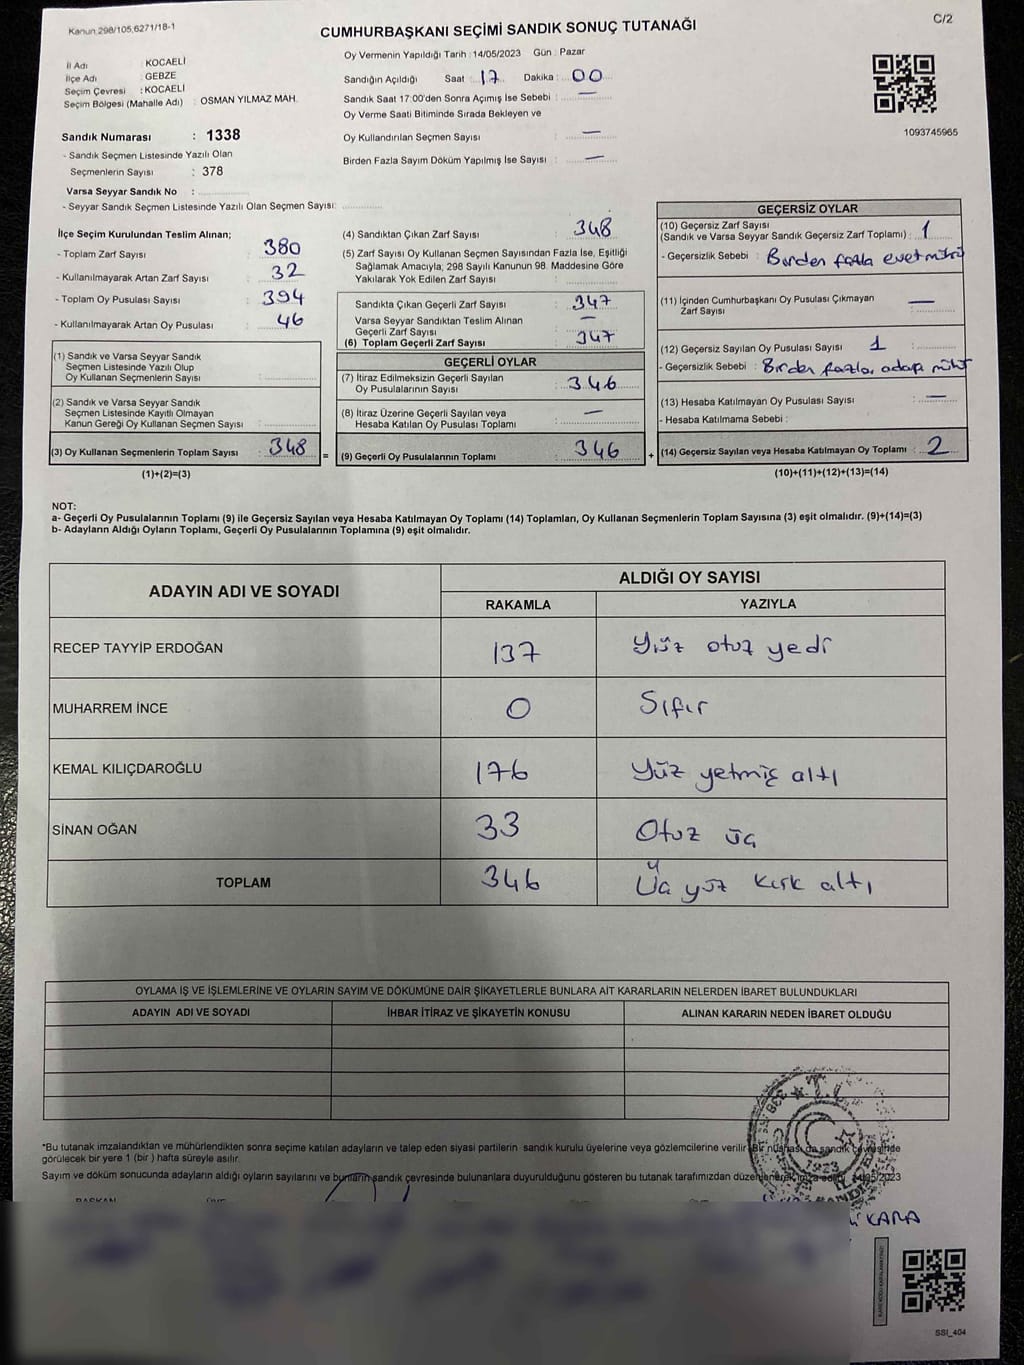 Kanun 298/105,6271/18-1
C/2
CUMHURBAŞKANI SEÇİMİ SANDIK SONUÇ TUTANAĞI
İl Adı : KOCAELİ
İlçe Adı : GEBZE
Seçim Çevresi : KOCAELİ
Seçim Bölgesi (Mahalle Adı) : OSMAN YILMAZ MAH.
Sandık Numarası : 1338
- Sandık Seçmen Listesinde Yazılı Olan
Seçmenlerin Sayısı : 378
Varsa Seyyar Sandık No :
- Seyyar Sandık Seçmen Listesinde Yazılı Olan Seçmen Sayısı:
Oy Vermenin Yapıldığı Tarih : 14/05/2023 Gün : Pazar
Sandığın Açıldığı Saat : 17 Dakika : 00
Sandık Saat 17:00'den Sonra Açımış İse Sebebi : —
Oy Verme Saati Bitiminde Sırada Bekleyen ve
Oy Kullandırılan Seçmen Sayısı : —
Birden Fazla Sayım Döküm Yapılmış İse Sayısı : —
1093745965
İlçe Seçim Kurulundan Teslim Alınan;
- Toplam Zarf Sayısı : 380
- Kullanılmayarak Artan Zarf Sayısı : 32
- Toplam Oy Pusulası Sayısı : 394
- Kullanılmayarak Artan Oy Pusulası : 46
(1) Sandık ve Varsa Seyyar Sandık
Seçmen Listesinde Yazılı Olup
Oy Kullanan Seçmenlerin Sayısı :
(2) Sandık ve Varsa Seyyar Sandık
Seçmen Listesinde Kayıtlı Olmayan
Kanun Gereği Oy Kullanan Seçmen Sayısı :
(3) Oy Kullanan Seçmenlerin Toplam Sayısı : 348
(1)+(2)=(3)
=
(4) Sandıktan Çıkan Zarf Sayısı : 348
(5) Zarf Sayısı Oy Kullanan Seçmen Sayısından Fazla İse, Eşitliği
Sağlamak Amacıyla; 298 Sayılı Kanunun 98. Maddesine Göre
Yakılarak Yok Edilen Zarf Sayısı :
Sandıkta Çıkan Geçerli Zarf Sayısı : 347
Varsa Seyyar Sandıktan Teslim Alınan
Geçerli Zarf Sayısı : —
(6) Toplam Geçerli Zarf Sayısı : 347
GEÇERLİ OYLAR
(7) İtiraz Edilmeksizin Geçerli Sayılan
Oy Pusulalarının Sayısı : 346
(8) İtiraz Üzerine Geçerli Sayılan veya
Hesaba Katılan Oy Pusulası Toplamı : —
(9) Geçerli Oy Pusulalarının Toplamı : 346
+
GEÇERSİZ OYLAR
(10) Geçersiz Zarf Sayısı
(Sandık ve Varsa Seyyar Sandık Geçersiz Zarf Toplamı) : 1
- Geçersizlik Sebebi : Birden fazla evet mührü
(11) İçinden Cumhurbaşkanı Oy Pusulası Çıkmayan
Zarf Sayısı : —
(12) Geçersiz Sayılan Oy Pusulası Sayısı : 1
- Geçersizlik Sebebi : Birden fazla adaya mühür
(13) Hesaba Katılmayan Oy Pusulası Sayısı : —
- Hesaba Katılmama Sebebi :
(14) Geçersiz Sayılan veya Hesaba Katılmayan Oy Toplamı : 2
(10)+(11)+(12)+(13)=(14)
NOT:
a- Geçerli Oy Pusulalarının Toplamı (9) ile Geçersiz Sayılan veya Hesaba Katılmayan Oy Toplamı (14) Toplamları, Oy Kullanan Seçmenlerin Toplam Sayısına (3) eşit olmalıdır. (9)+(14)=(3)
b- Adayların Aldığı Oyların Toplamı, Geçerli Oy Pusulalarının Toplamına (9) eşit olmalıdır.
ADAYIN ADI VE SOYADI
ALDIĞI OY SAYISI
RAKAMLA YAZIYLA
RECEP TAYYİP ERDOĞAN 137 Yüz otuz yedi
MUHARREM İNCE 0 Sıfır
KEMAL KILIÇDAROĞLU 176 Yüz yetmiş altı
SİNAN OĞAN 33 Otuz üç
TOPLAM 346 Üç yüz kırk altı
OYLAMA İŞ VE İŞLEMLERİNE VE OYLARIN SAYIM VE DÖKÜMÜNE DAİR ŞİKAYETLERLE BUNLARA AİT KARARLARIN NELERDEN İBARET BULUNDUKLARI
ADAYIN ADI VE SOYADI İHBAR İTİRAZ VE ŞİKAYETİN KONUSU ALINAN KARARIN NEDEN İBARET OLDUĞU
*Bu tutanak imzalandıktan ve mühürlendikten sonra seçime katılan adayların ve talep eden siyasi partilerin sandık kurulu üyelerine veya gözlemcilerine verilir. Bir nüshası da sandık çevresinde
görülecek bir yere 1 (bir) hafta süreyle asılır.
Sayım ve döküm sonucunda adayların aldığı oyların sayılarını ve bunların sandık çevresinde bulunanlara duyurulduğunu gösteren bu tutanak tarafımızdan düzenlenerek imza edildi. 14/05/2023
T.C.
1923
BAŞKAN
KARA
SSI_404